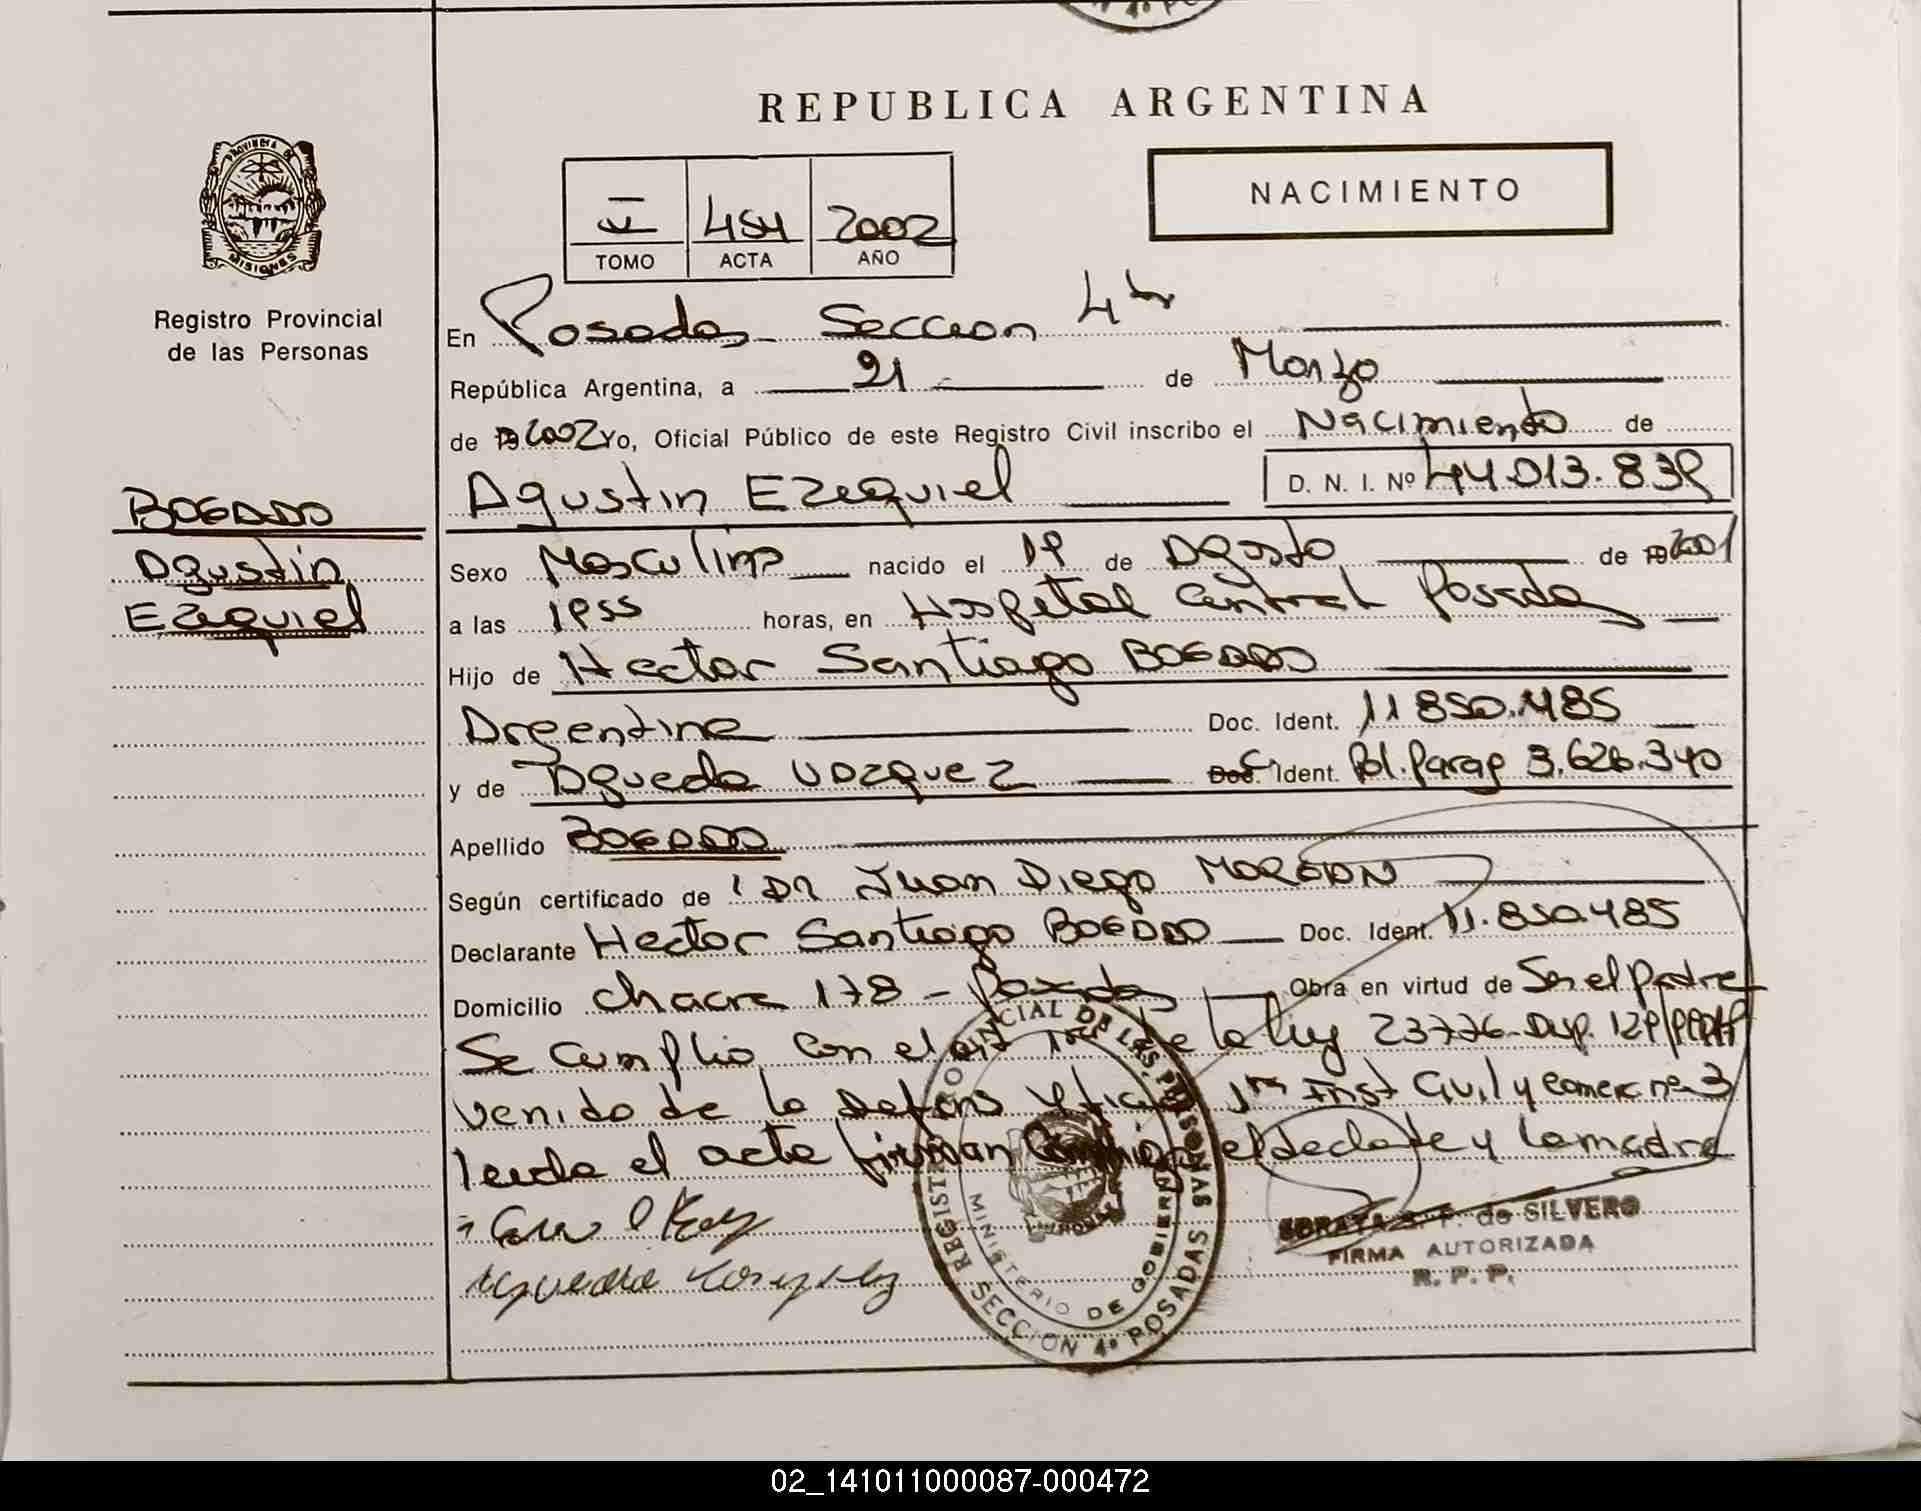 REPUBLICA ARGENTINA
PROVINCIA DE
MISIONES
Registro Provincial
de las Personas
TOMO
454 ACTA
2002 AÑO
NACIMIENTO
En Posadas Seccion 4ta
República Argentina, a 21 de Marzo
de 2002 Yo, Oficial Público de este Registro Civil inscribo el Nacimiento de
Agustin Ezequiel D. N. I. Nº 44.013.839
BOGADO
Agustin
Ezequiel
Sexo Masculino nacido el 19 de Agosto de 2001
a las 1955 horas, en Hospital Central Posadas
Hijo de Hector Santiago BOGADO
Argentina Doc. Ident. 11.850.485
y de Agueda VAZQUEZ Ident. Pol. Parag 3.626.340
Apellido BOGADO
Según certificado de Dr Juan Diego
Declarante Hector Santiago BOGADO Doc. Ident. 11.850.485
Domicilio Chacra 178 - Posadas Obra en virtud de Ser el padre
Se cumplio con el art de la ley 23776 - Disp. 129
venido de la Defens Oficial 1ra Inst Civil y Comerc nº 3
leida el acta firman el declate y la madre
SORAYA F. de SILVERO
FIRMA AUTORIZADA
R. P. P.
REGISTRO PROVINCIAL DE LAS PERSONAS
MINISTERIO DE GOBIERNO
SECCION 4º POSADAS
02_141011000087-000472